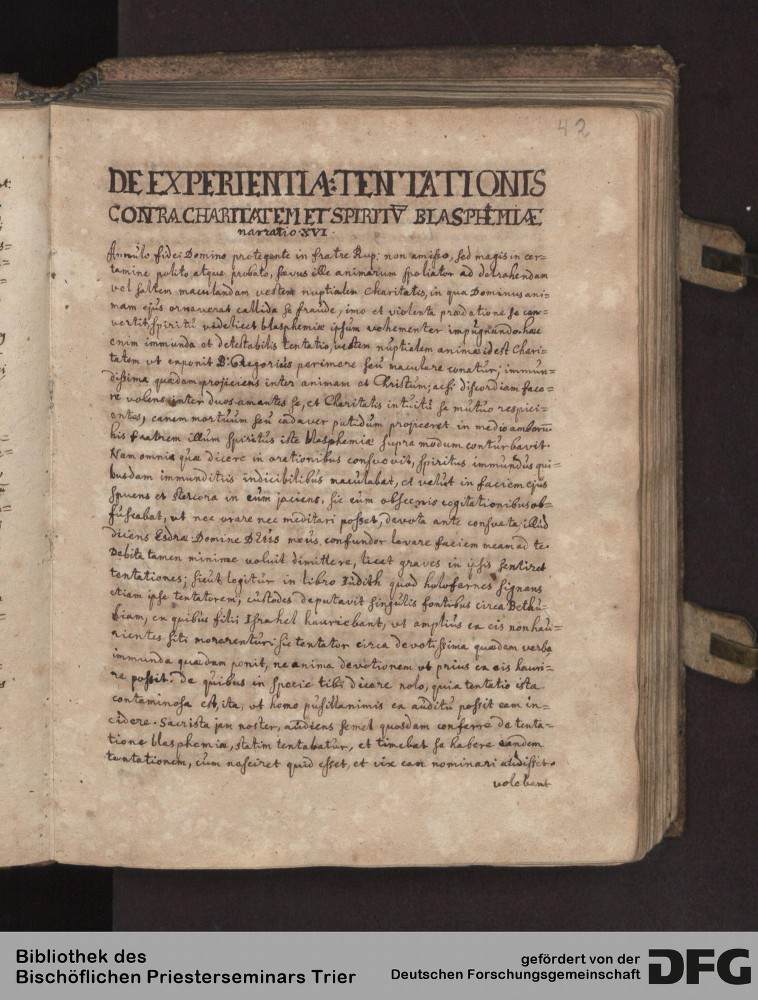 42
DE EXPERIENTIA: TENTATIONIS
CONTRA CHARITATEM ET SPIRITV̄ BLASPHEMIÆ
narratio XVI.
Annulo fidei Domino protegente in fratre Rup: non amisso, sed magis in cer=
tamine polito, atque probato, sævus ille animarum spoliator ad detrahendam
vel saltem maculandam vestem nuptialem Charitatis, in qua Dominus ani=
mam ejus ornaverat callida se fraude, imo et violenta prædatione se con=
vertit, Spiritu videlicet blasphemiæ ipsum vehementer impugnando. hæc
enim immunda et detestabilis tentatio, vestem nuptialem animæ id est Chari=
tatem ut exponit B: Gregorius perimere seu maculare conatur; immun=
dissima quædam projiciens inter animam et Christum; ac si discordiam face=
re volens inter duos amantes se, et Charitatis intuitu se mutuo respici=
entes, canem mortuum seu cadaver putidum projiceret in medio amborū
his fratrem illum Spiritus iste blasphemiæ supra modum conturbavit.
Nam omnia quæ dicere in orationibus consuevit, Spiritus immundus qui=
busdam immunditiis indicibilibus maculabat, et velut in faciem ejus
spuens et stercora in eum jaciens, sic eum obscænis cogitationibus ob=
fuscabat, ut nec orare nec meditari posset, devota ante consueta illud
dicens Esdræ. Domine DEUS meus, confundor levare faciem meam ad te.
Debita tamen minime voluit dimittere, licet graves in ipsis sentiret
tentationes; sicut legitur in libro Iudith quod holofernes signans
etiam ipse tentatorem, custodes deputavit singulis fontibus circa Bethu=
liam, ex quibus filii Israhel hauriebant, ut amplius ex eis non hau=
rientes siti morerentur: sic tentator circa devotissima quædam verba
immunda quædam ponit, ne anima devotionem ut prius ex eis hauri=
re possit. De quibus in specie tibi dicere nolo, quia tentatio ista
contaminosa est, ita, ut homo pusillanimis ex auditu possit eam in=
cidere. Sacrista jan noster, audiens semel quosdam conferre de tenta=
tione blasphemiæ, statim tentabatur, et timebat se habere eandem
tentationem, cum nesciret quid esset, et vix eam nominari audisset.
volebant
Bibliothek des
Bischöflichen Priesterseminars Trier
gefördert von der
Deutschen Forschungsgemeinschaft
DFG